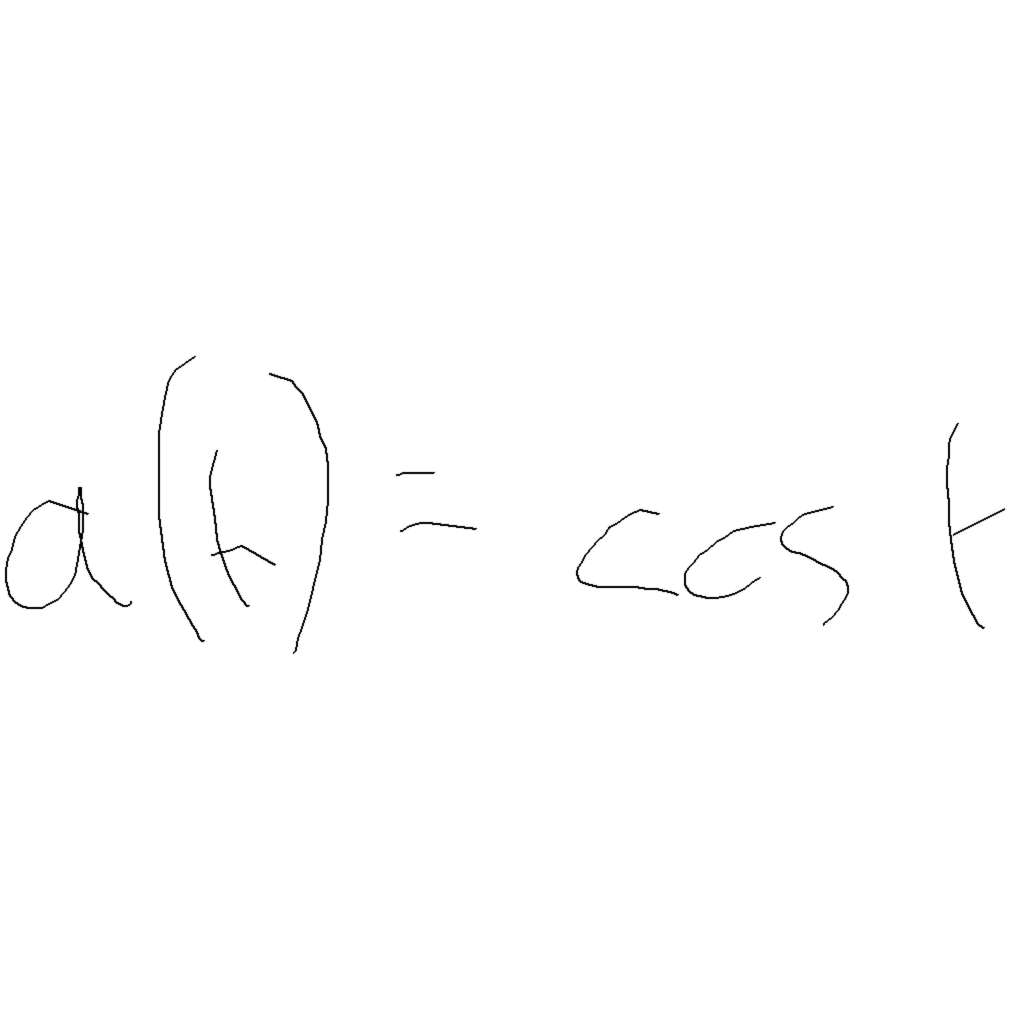 a(t) = cos t